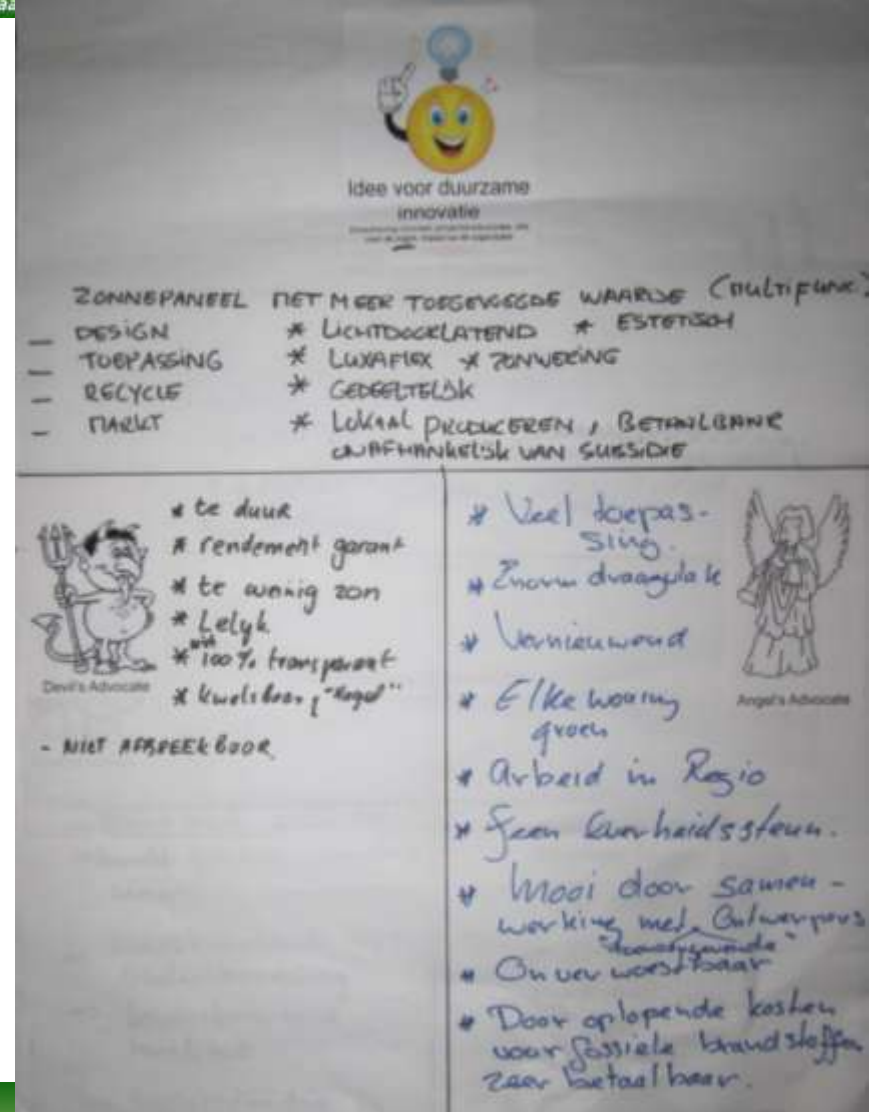 Idee voor duurzame
innovatie
ZONNEPANEEL MET MEER TOEGEVOEGDE WAARDE (MULTIFUNC.)
— DESIGN * LICHTDOORLATEND * ESTETISCH
— TOEPASSING * LUXAFLEX * ZONWERING
— RECYCLE * GEDEELTELIJK
— MARKT * LOKAAL PRODUCEREN, BETAALBAAR
ONAFHANKELIJK VAN SUBSIDIE
* te duur
* rendement garant
* te weinig zon
* Lelyk
* niet 100% transparant
* kwetsbaar, "Hagel"
Devil's Advocate
- NIET AFBREEKBOOR
* Veel toepas-
sing.
* Enorm draagvlak
* Vernieuwend
* Elke woning
groen
* Arbeid in Regio
* Geen Overheidssteun.
* Mooi door samen-
werking met Ontwerpers
* Onverwoestbaar
* Door oplopende kosten
voor fossiele brandstoffen
zeer betaalbaar.
Angel's Advocate